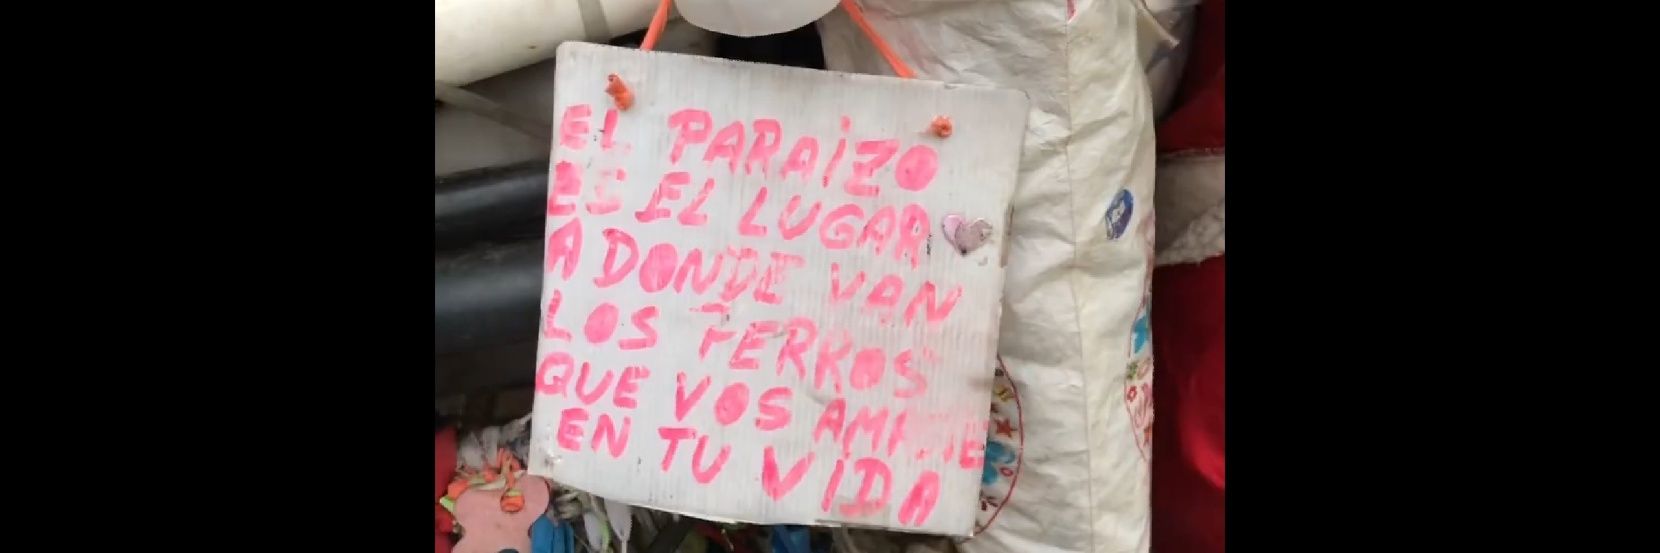 EL PARAiZO
ES EL LUGAR
A DONDE VAN
LOS FERROS
QUE VOS
EN TU ViDA